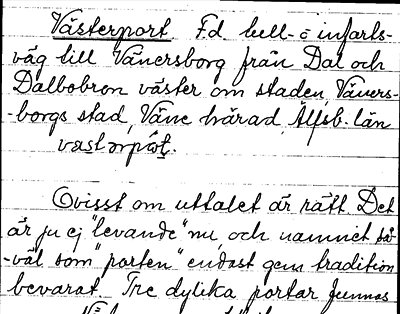 Västerport F.d. tull- o infarts-
väg till Vänersborg från Dal och
Dalbobron väster om staden, Väners-
-borgs stad, Väne härad, Älfsb. län
Ovisst om uttalet är rätt. Det
är ju ej "levande" nu, och namnet så-
-väl som "porten" endast gem tradition
bevarat. Tre dylika portar funnos